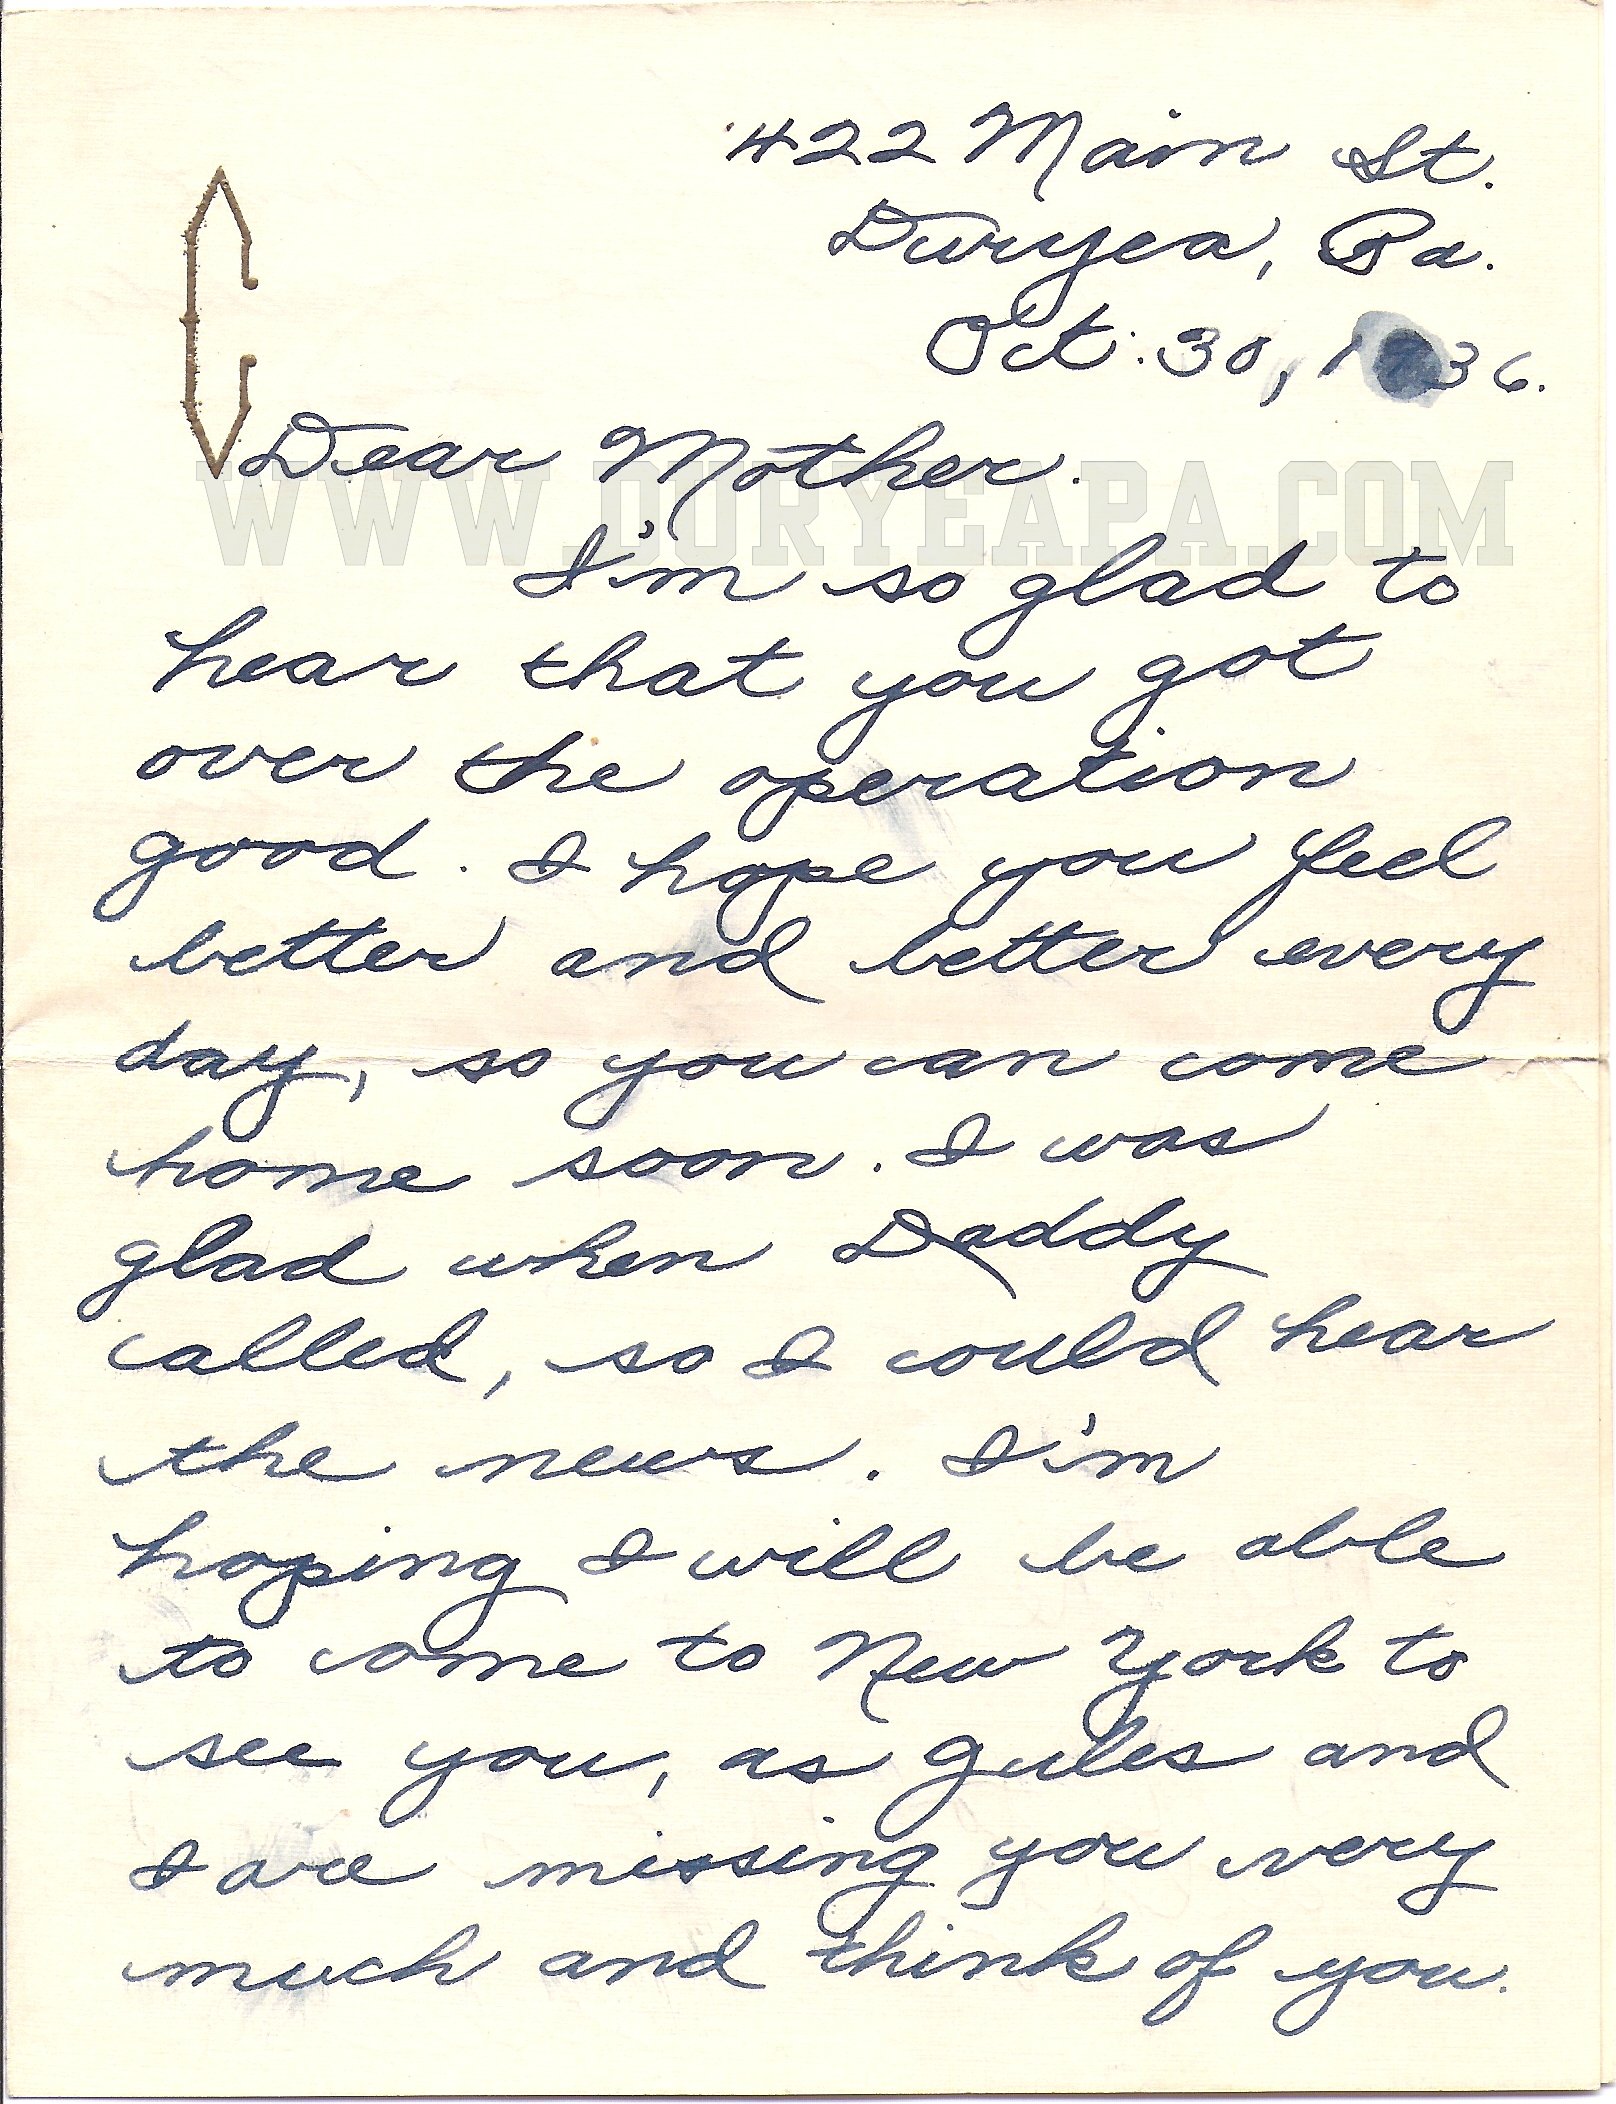 422 Main St.
Duryea, Pa.
Oct. 30, 1936.
C
Dear Mother.
WWW.DURYEAPA.COM
I'm so glad to
hear that you got
over the operation
good. I hope you feel
better and better every
day, so you can come
home soon. I was
glad when Daddy
called, so I could hear
the news. I'm
hoping I will be able
to come to New York to
see you, as Jules and
I are missing you very
much and think of you.